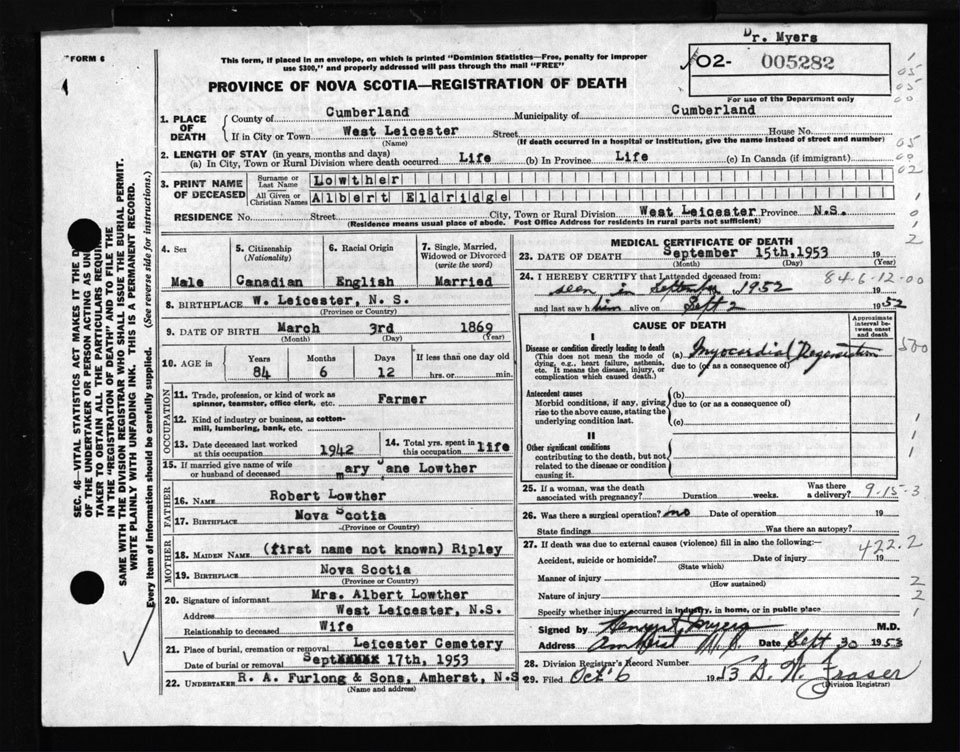 Dr. Myers
FORM 6
This form, if placed in an envelope, on which is printed "Dominion Statistics—Free, penalty for improper
use $300," and properly addressed will pass through the mail "FREE"
02- 005282
For use of the Department only
PROVINCE OF NOVA SCOTIA—REGISTRATION OF DEATH
1. PLACE OF DEATH County of Cumberland Municipality of Cumberland
If in City or Town West Leicester Street House No.
(Name) (If death occurred in a hospital or institution, give the name instead of street and number)
2. LENGTH OF STAY (in years, months and days)
(a) In City, Town or Rural Division where death occurred Life (b) In Province Life (c) In Canada (if immigrant)
3. PRINT NAME OF DECEASED Surname or Last Name Lowther
All Given or Christian Names Albert Eldridge
RESIDENCE No. Street City, Town or Rural Division West Leicester Province N.S.
(Residence means usual place of abode. Post Office Address for residents in rural parts not sufficient)
4. Sex Male
5. Citizenship (Nationality) Canadian
6. Racial Origin English
7. Single, Married, Widowed or Divorced (write the word) Married
8. BIRTHPLACE W. Leicester, N. S.
(Province or Country)
9. DATE OF BIRTH March 3rd 1869
(Month) (Day) (Year)
10. AGE is Years 84 Months 6 Days 12 If less than one day old hrs. or min.
OCCUPATION
11. Trade, profession, or kind of work as spinner, teamster, office clerk, etc. Farmer
12. Kind of industry or business, as cotton-mill, lumbering, bank, etc.
13. Date deceased last worked at this occupation 1942
14. Total yrs. spent in this occupation life
15. If married give name of wife or husband of deceased mary Jane Lowther
FATHER
16. NAME Robert Lowther
17. BIRTHPLACE Nova Scotia
(Province or Country)
MOTHER
18. MAIDEN NAME (first name not known) Ripley
19. BIRTHPLACE Nova Scotia
(Province or Country)
20. Signature of informant Mrs. Albert Lowther
Address West Leicester, N.S.
Relationship to deceased Wife
21. Place of burial, cremation or removal Leicester Cemetery
Date of burial or removal Sept 17th, 1953
22. UNDERTAKER R. A. Furlong & Sons, Amherst, N.S
(Name and address)
MEDICAL CERTIFICATE OF DEATH
23. DATE OF DEATH September 15th, 1953
(Month) (Day) (Year)
24. I HEREBY CERTIFY that I attended deceased from:
seen in September 1952 19
84-6-12-00
and last saw him alive on Sept 2 1952
CAUSE OF DEATH
Approximate interval between onset and death
I
Disease or condition directly leading to death (a) Myocardial Degeneration
(This does not mean the mode of dying, e.g., heart failure, asthenia, etc. It means the disease, injury, or complication which caused death.) due to (or as a consequence of)
500
Antecedent causes (b)
Morbid conditions, if any, giving rise to the above cause, stating the underlying condition last. due to (or as a consequence of)
(c)
II
Other significant conditions
contributing to the death, but not related to the disease or condition causing it.
25. If a woman, was the death associated with pregnancy? Duration weeks. Was there a delivery?
9-15-3
26. Was there a surgical operation? no Date of operation 19
State findings Was there an autopsy?
27. If death was due to external causes (violence) fill in also the following:—
422.2
Accident, suicide or homicide? Date of injury 19
(State which)
Manner of injury
(How sustained)
Nature of injury
Specify whether injury occurred in industry, in home, or in public place
Signed by Myers M.D.
Address Amherst N.S. Date Sept 30 1953
28. Division Registrar's Record Number
29. Filed Oct 6 1953 D. W. Fraser
(Division Registrar)
SEC. 46—VITAL STATISTICS ACT MAKES IT THE D
OF THE UNDERTAKER OR PERSON ACTING AS UN
TAKER TO OBTAIN ALL THE PARTICULARS REQUIR
IN THE "REGISTRATION OF DEATH" AND TO FILE THE
SAME WITH THE DIVISION REGISTRAR WHO SHALL ISSUE THE BURIAL PERMIT.
WRITE PLAINLY WITH UNFADING INK. THIS IS A PERMANENT RECORD.
Every item of information should be carefully supplied. (See reverse side for instructions.)
05
05
00
05
00
02
1
0
1
2
1
1
1
2
2
1